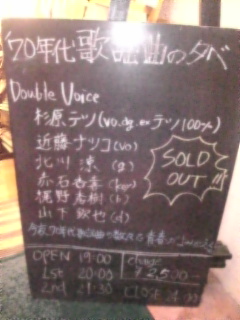 '70年代歌謡曲の夕べ
Double Voice
杉原テツ(vo.dg.exテツ100%)
近藤ナツコ(vo)
北川涼(g)
赤石香喜(key)
梶野秀樹(b)
山下欽也(d)
SOLD
OUT!!!
OPEN 19:00
1st 20:00
2nd 21:30
charge
¥2,500-
CLOSE 24:00